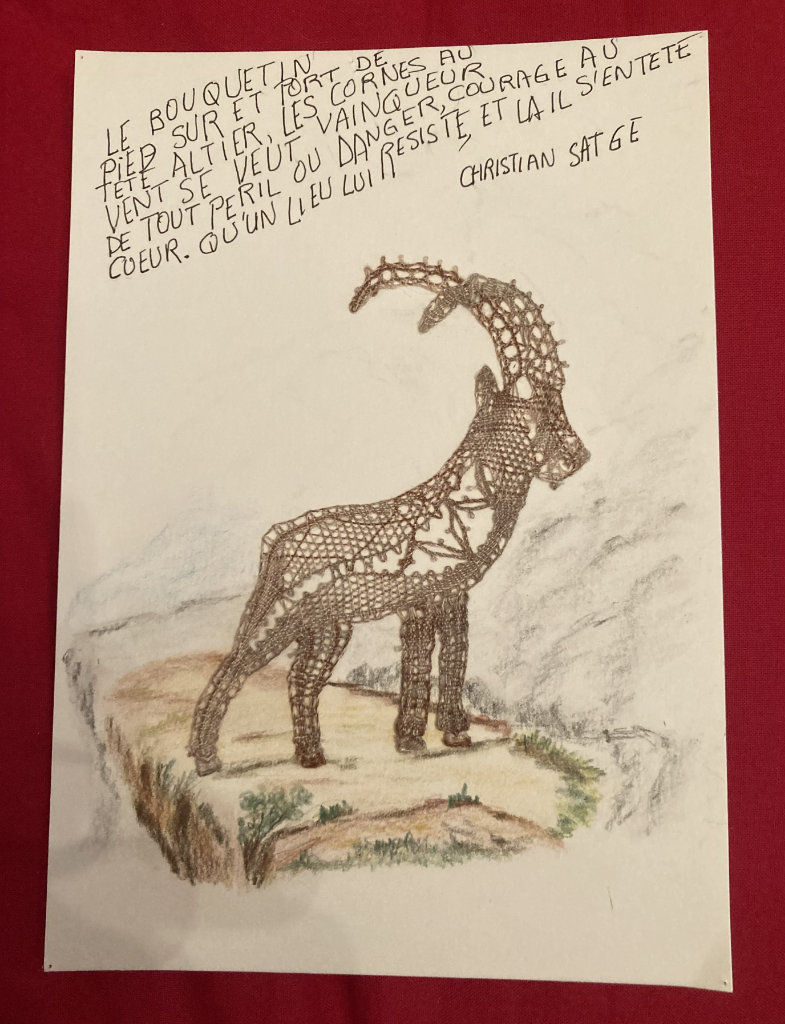 LE BOUQUETIN
PIED SUR ET PORT DE
TETE ALTIER, LES CORNES AU
VENT SE VEUT VAINQUEUR
DE TOUT PERIL OU DANGER, COURAGE AU
COEUR. QU'UN LIEU LUI RESISTE, ET LA IL S'ENTETE
CHRISTIAN SATGE